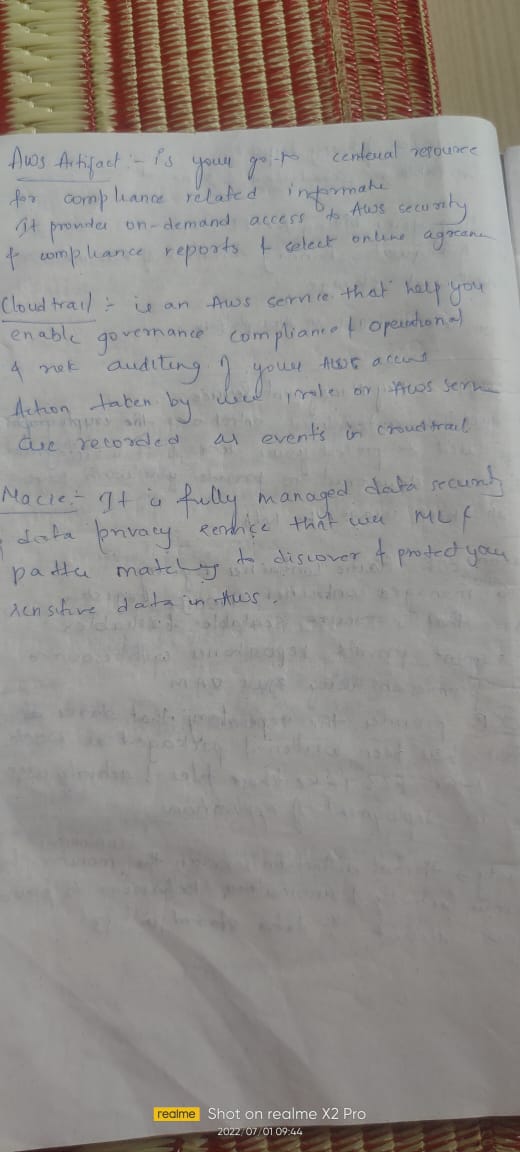 AWS Artifact :- is your go-to central resource
for compliance related informate
It provides on-demand access to AWS security
& compliance reports & select online
Cloud trail :- is an AWS service that help you
enable governance compliance & operational
& risk auditing of your AWS
Action taken by user, role or AWS
are recorded as events in cloud trail
Macie :- It is fully managed data security
data privacy service that use ML &
matching to discover & protect you
sensitive data in AWS.
realme Shot on realme X2 Pro
2022/07/01 09:44